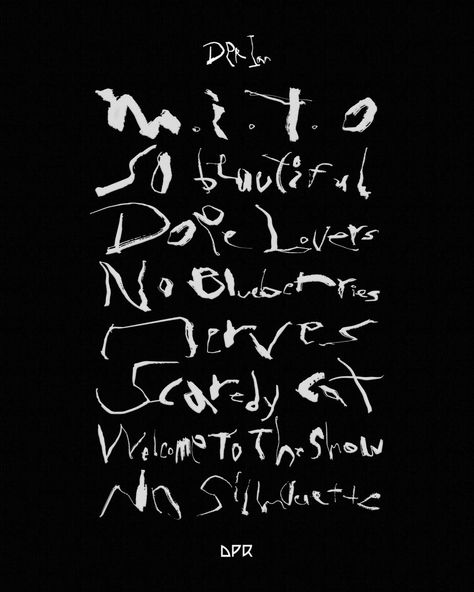 DPR Ian
m.i.t.o
SO beautiful
Dope Lovers
No Blueberries
Nerves
Scaredy Cat
Welcome To The Show
No Silhouette
DPR